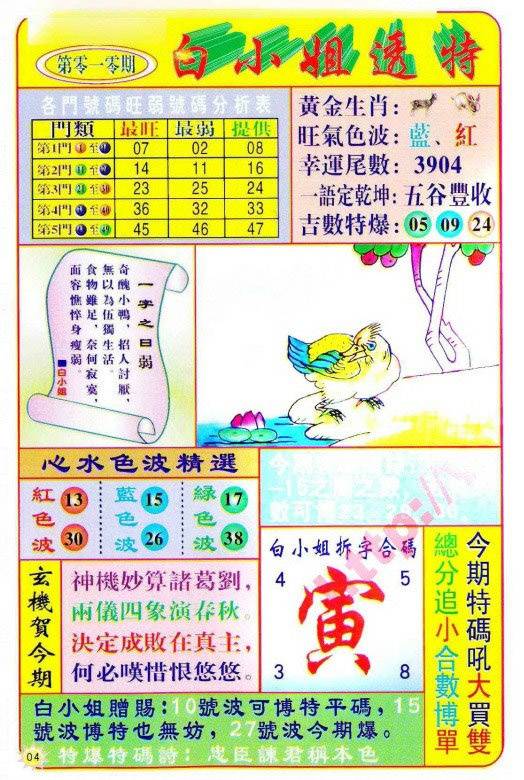 第零一零期
白小姐透特
各門號碼旺弱號碼分析表
門類 最旺 最弱 提供
第1門 1至 07 02 08
第2門 至 14 11 16
第3門 至 23 25 24
第4門 至 36 32 33
第5門 至49 45 46 47
黃金生肖：
旺氣色波：藍、紅
幸運尾數：3904
一語定乾坤：五谷豐收
吉數特爆：05 09 24
一字之曰弱
奇醜小鴨，招人討厭，
無以為伍獨生活。
食物雖足，奈何寂寞，
面容憔悴身瘦弱。
■白小姐
心水色波精選
紅色波 13 30
藍色波 15 26
綠色波 17 38
http://
玄機賀今期
神機妙算諸葛劉，
兩儀四象演春秋。
決定成敗在真主，
何必嘆惜恨悠悠。
白小姐拆字合碼
4 5
寅
3 8
今期特碼吼大買雙
總分追小合數博單
白小姐贈賜：10號波可博特平碼，15
號波博特也無妨，27號波今期爆。
特爆特碼詩：忠臣諫君稱本色
04